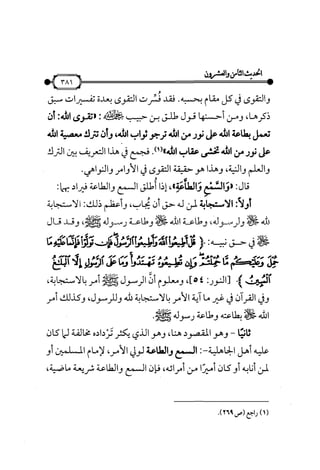 الحديث الثامن والعشرون
٣٨١
والتقوى في كل مقام بحسبه. فقد فُسِّرت التقوى بعدة تفسيرات سبق
ذكرها، ومن أحسنها قول طلق بن حبيب: «تقوى الله: أن
تعمل بطاعة الله على نور من الله ترجو ثواب الله، وأن تترك معصية الله
على نور من الله تخشى عقاب الله»(١). فجمع في هذا التعريف بين الترك
والعلم والنية، وهذا هو حقيقة التقوى في الأوامر والنواهي.
قال: «وَالسَّمْعِ وَالطَّاعَةِ»، إذا أُطلق السمع والطاعة فيراد بهما:
أولاً: الاستجابة لمن له حق أن يُجاب، وأعظم ذلك: الاستجابة
لله ولرسوله، وطاعة الله وطاعة رسوله ﷺ، وقد قال
في حق نبيه: ﴿قُلْ أَطِيعُوا اللَّهَ وَأَطِيعُوا الرَّسُولَ فَإِن تَوَلَّوْا فَإِنَّمَا عَلَيْهِ مَا
حُمِّلَ وَعَلَيْكُم مَّا حُمِّلْتُمْ وَإِن تُطِيعُوهُ تَهْتَدُوا وَمَا عَلَى الرَّسُولِ إِلَّا الْبَلَاغُ
الْمُبِينُ﴾ [النور: ٥٤]، ومعلوم أنَّ الرسول ﷺ أمر بالاستجابة،
وفي القرآن في غير ما آية الأمر بالاستجابة لله وللرسول، وكذلك أمر
الله بطاعته وطاعة رسوله ﷺ.
ثانيًا - وهو المقصود هنا، وهو الذي يكثر تَرْداده مخالفة لما كان
عليه أهل الجاهلية-: السمع والطاعة لولي الأمر، لإمام المسلمين أو
لمن أنابه أو كان أميرًا من أمرائه، فإن السمع والطاعة شريعة ماضية،
(١) راجع (ص ٢٦٩).